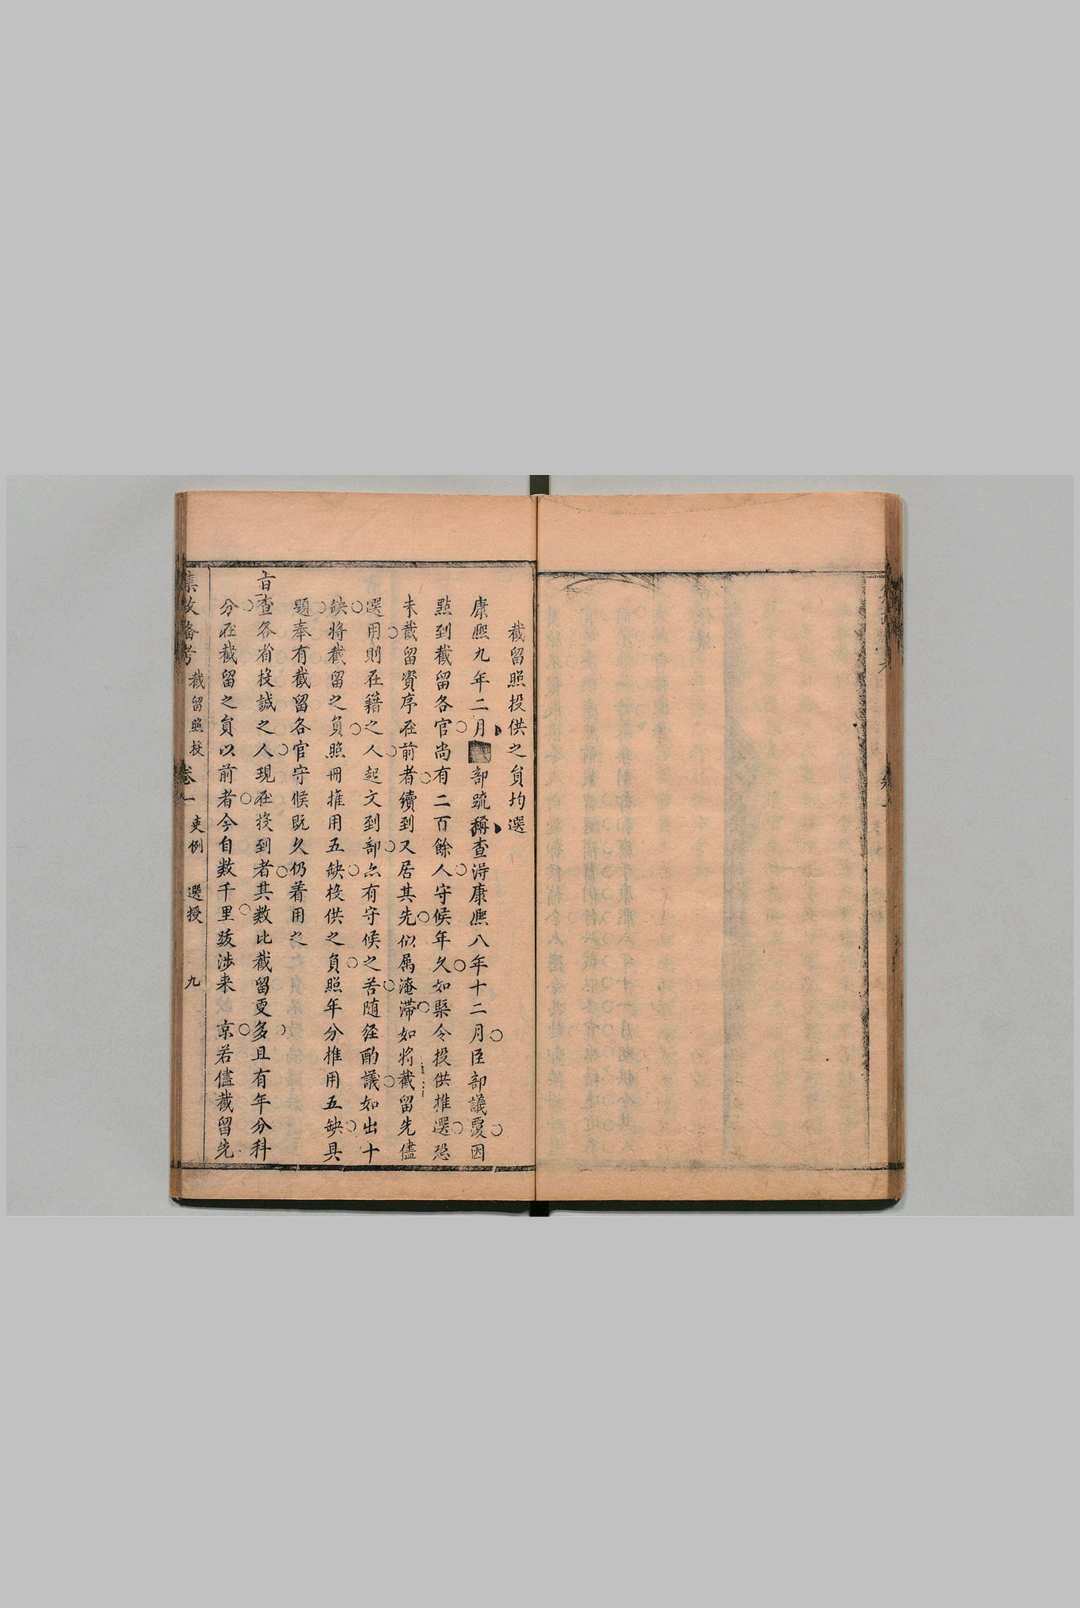 截留照投供之員均選
康熙九年二月部疏稱查淂康熙八年十二月臣部議覆因
點到截留各官尚有二百餘人守候年久如槩令投供推選恐
未截留資序在前者續到又居其先似属淹滯如將截留先儘
選用則在籍之人起文到部亦有守候之苦隨經酌議如出十
缺將截留之員照冊推用五缺投供之員照年分推用五缺具
題奉有截留各官守候既久仍着用之
旨查各省投誠之人現在投到者其數比截留更多且有年分科
分在截留之員以前者今自数千里跋涉来京若儘截留先
集政備考 截留照投 卷一 吏例 選授 九